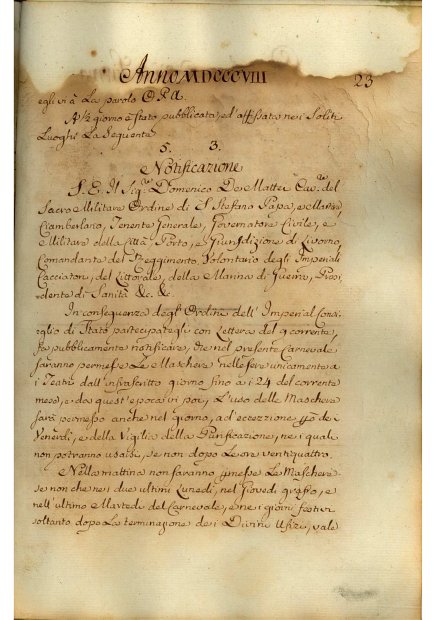 Anno MDCCCVIII 23
egli vi à La parola O.P.A.
A ½ giorno è stato pubblicata, ed' affissata nei Soliti
Luoghi La Seguente
5. 3.
Notificazione
S. E. Il Sig.re Domenico De Matteis Cav.re del
Sacro e Militare Ordine di S. Stefano Papa, e Martire
Ciamberlano, Tenente Generale, Governatore Civile, e
Militare della Città, Porto, e Giurisdizione di Livorno,
Comandante del Reggimento Volontario degli Imperiali
Cacciatori, del Littorale, della Marina di Guerra, Prov
vidente di Sanità &c. &c.
In conseguenza degli Ordini dell' Imperial Consi
glio di Stato partecipategli con Lettera del 9 corrente,
fa pubblicamente notificare, che nel presente Carnevale
saranno permesse Le Maschere nelle sere unicamente a
i Teatri dall' infrascritto giorno fino a i 24 del corrente
mese, e da quest' epoca in poi, L'uso delle Maschere
sarà permesso anche nel giorno, ad eccezzione dei
Venerdì, e della Vigilia della Purificazione, nei quali
non potranno usarsi, se non dopo Le ore ventiquattro.
Nella mattina non saranno permesse Le Maschere
se non che nei due ultimi Lunedì, nel Giovedì grasso, e
nell' ultimo Martedì del Carnevale, e nei giorni festivi
soltanto dopo La terminazione dei Divini Ufizi, vale